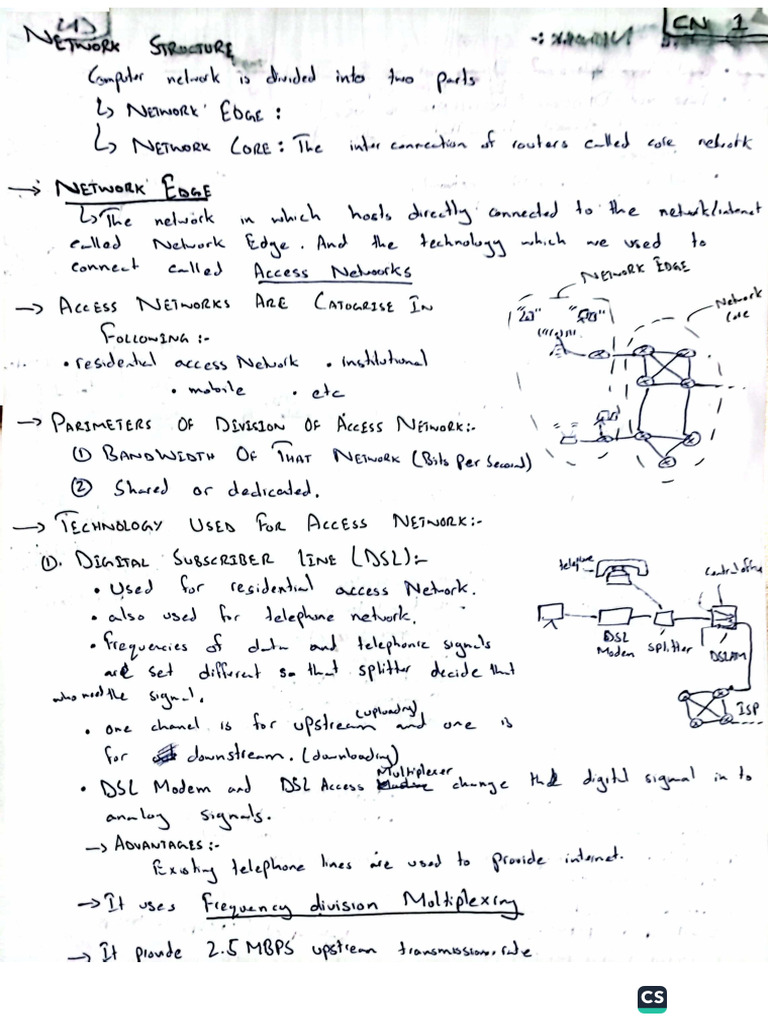 CN 1
NETWORK STRUCTURE
Computer network is divided into two parts
↳ NETWORK EDGE :
↳ NETWORK CORE : The inter connection of routers called core network
→ NETWORK EDGE
↳ The network in which hosts directly connected to the network/internet
called Network Edge. And the technology which we used to
connect called Access Networks
→ ACCESS NETWORKS ARE CATOGRISE IN
FOLLOWING :-
• residential access Network • institutional
• mobile • etc
NETWORK EDGE
Network
Core
→ PARIMETERS OF DIVISION OF ACCESS NETWORK:-
① BANDWIDTH OF THAT NETWORK (Bits Per Second)
② Shared or dedicated.
→ TECHNOLOGY USED FOR ACCESS NETWORK:-
①. DIGITAL SUBSCRIBER LINE (DSL):-
• Used for residential access Network.
• also used for telephone network.
• frequencies of data and telephonic signals
are set different so that splitter decide that
who need the signal.
• one chanel is for upstream (uploading) and one is
for downstream. (downloading)
telephone
Central office
DSL
Modem
splitter
DSLAM
ISP
• DSL Modem and DSL Access Multiplexer change the digital signal in to
analog signals.
→ ADVANTAGES :-
Existing telephone lines are used to provide internet.
→ It uses Frequency division Multiplexing
→ It provide 2.5 MBPS upstream transmission rate
CS